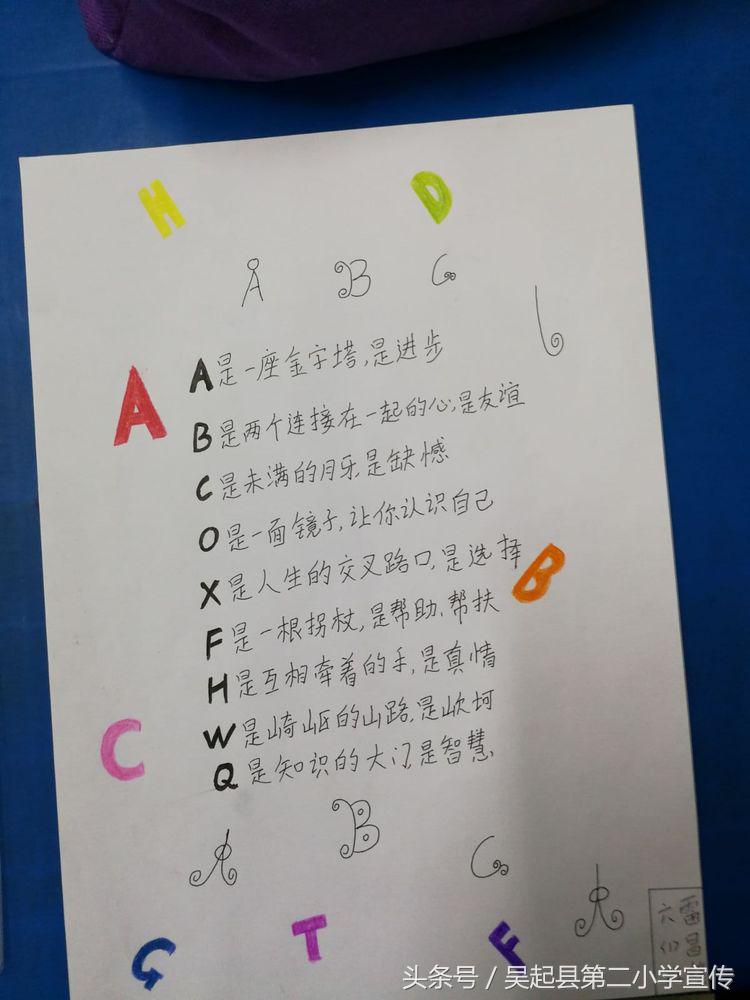 H D
A B C
A
A是一座金字塔,是进步
B是两个连接在一起的心,是友谊
C是未满的月牙,是缺憾
O是一面镜子,让你认识自己
X是人生的交叉路口,是选择
B
F是一根拐杖,是帮助、帮扶
H是互相牵着的手,是真情
W是崎岖的山路,是坎坷
C
Q是知识的大门,是智慧
A B C A
G T F
六雷
(1)昌
头条号/吴起县第二小学宣传